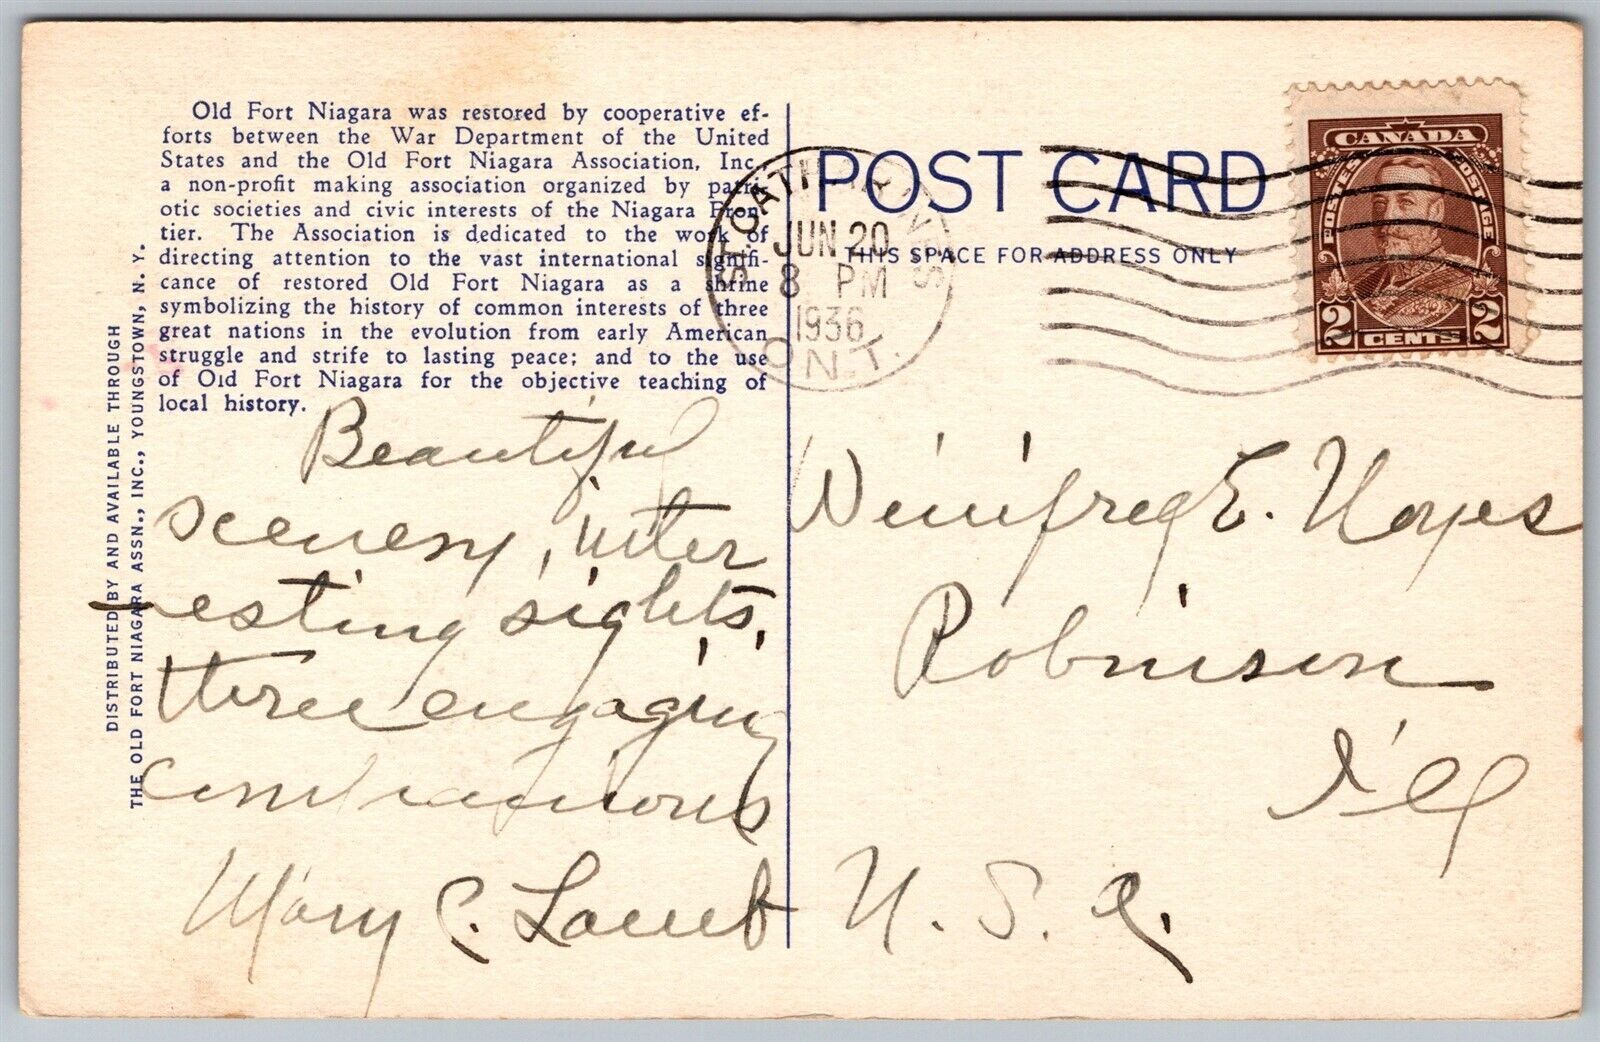 Old Fort Niagara was restored by cooperative ef-
forts between the War Department of the United
States and the Old Fort Niagara Association, Inc.,
a non-profit making association organized by patri-
otic societies and civic interests of the Niagara Fron-
tier. The Association is dedicated to the work of
directing attention to the vast international signifi-
cance of restored Old Fort Niagara as a shrine
symbolizing the history of common interests of three
great nations in the evolution from early American
struggle and strife to lasting peace; and to the use
of Old Fort Niagara for the objective teaching of
local history.
DISTRIBUTED BY AND AVAILABLE THROUGH
THE OLD FORT NIAGARA ASSN., INC., YOUNGSTOWN, N. Y.
Beautiful
scenery, inter
-esting sights,
three engaging
companions
Mary C. Lamb
POST CARD
THIS SPACE FOR ADDRESS ONLY
ST. CATHARINES
JUN 20
8 PM
1936
ONT.
CANADA
POSTES POSTAGE
2 CENTS 2
Winifred E. Noyes
Robinson
Ill
U. S. A.